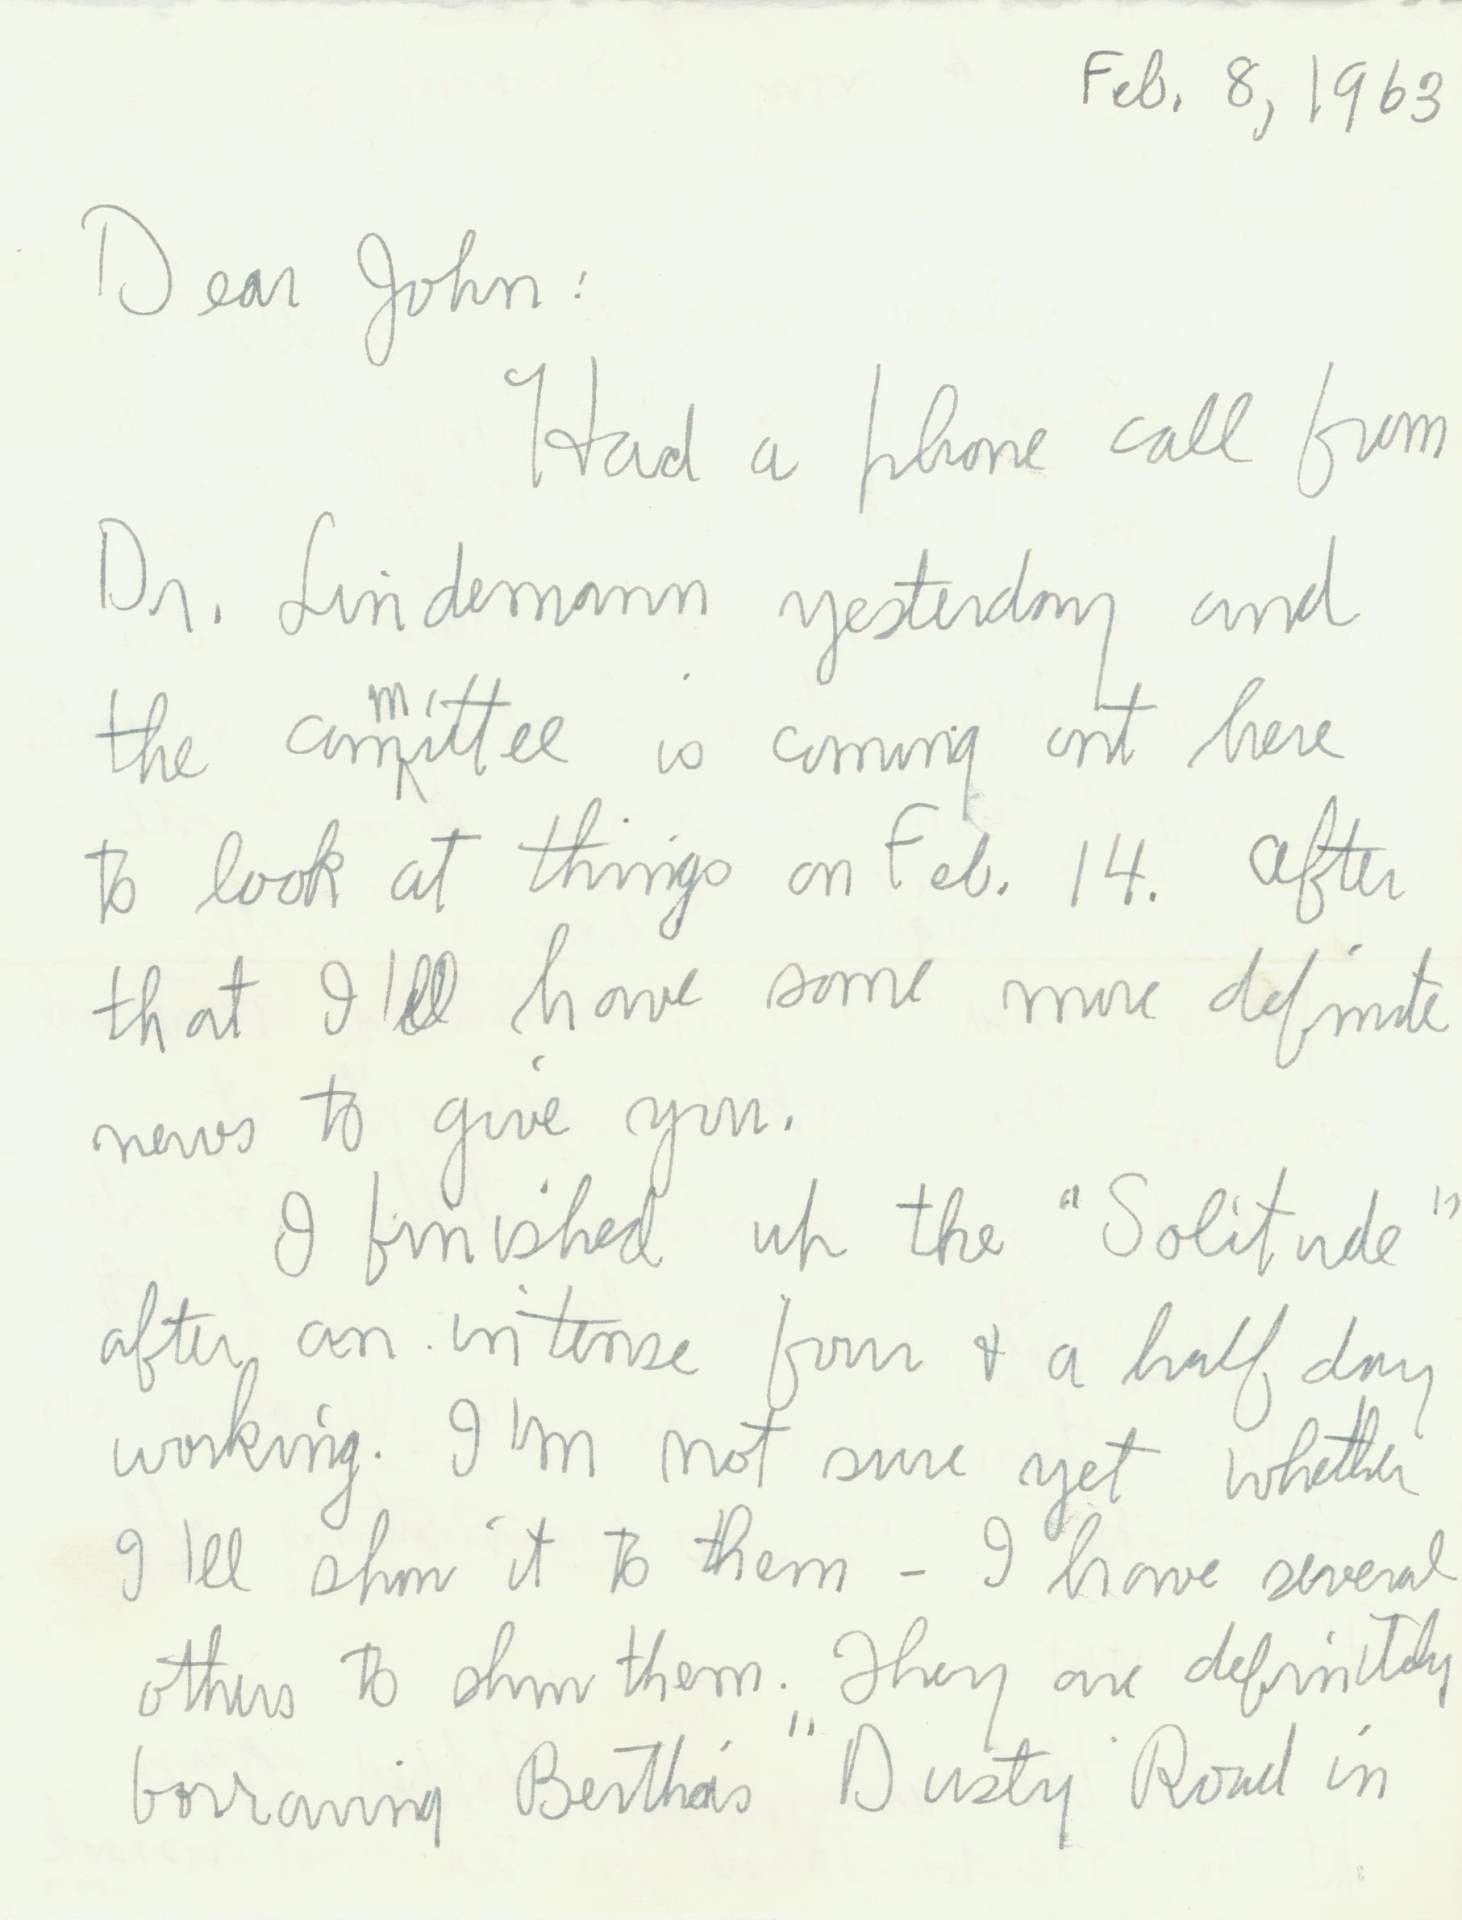 Feb. 8, 1963
Dear John:
Had a phone call from
Dr. Lindemann yesterday and
the committee is coming out here
to look at things on Feb. 14. After
that I'll have some more definite
news to give you.
I finished up the "Solitude"
after an intense four & a half day
working. I'm not sure yet whether
I'll show it to them - I have several
others to show them. They are definitely
borrowing Bertha's "Dusty Road in